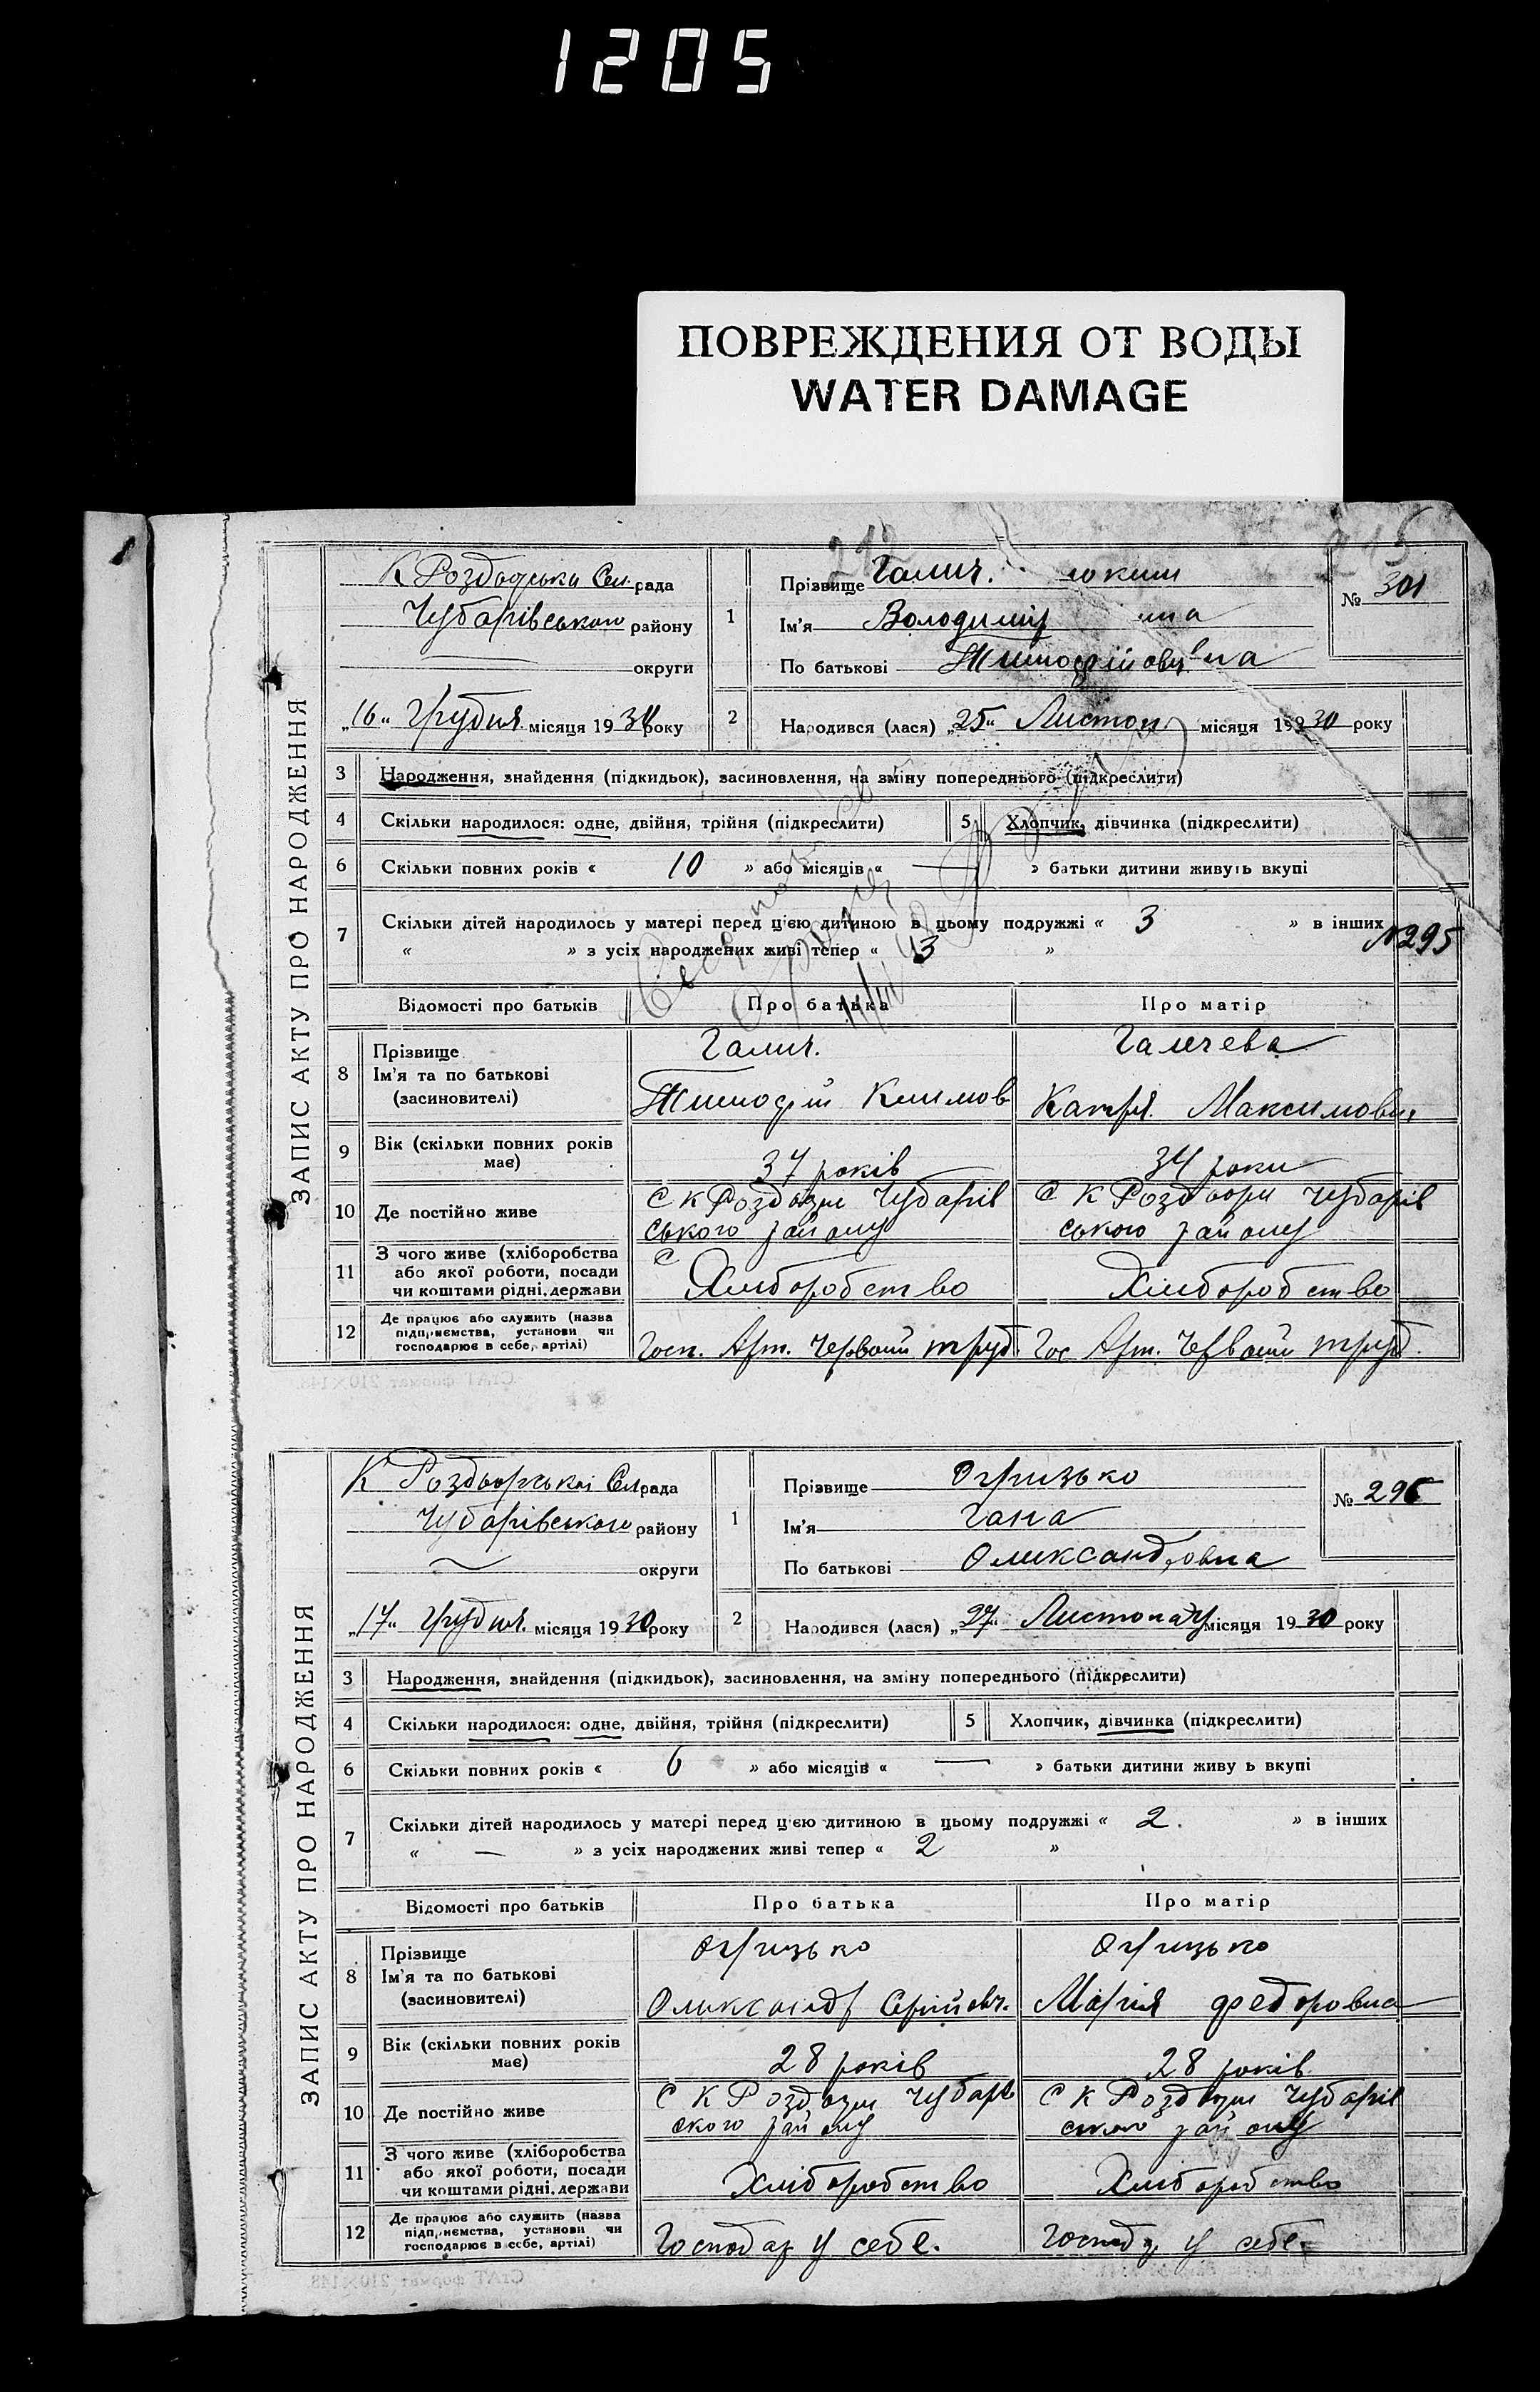 1205
ПОВРЕЖДЕНИЯ ОТ ВОДЫ
WATER DAMAGE
ЗАПИС АКТУ ПРО НАРОДЖЕННЯ
К Роздорська Сел. рада
Чубарівського району
округи
„16“ Грудня місяця 1930 року
1
Прізвище Галич.
Ім'я Володимір
По батькові Тимофійович
№ 301
2 Народився (лася) „25“ Листоп. місяця 1930 року
3 Народження, знайдення (підкидьок), засиновлення, на зміну попереднього (підкреслити)
4 Скільки народилося: одне, двійня, трійня (підкреслити) 5 Хлопчик, дівчинка (підкреслити)
6 Скільки повних років « 10 » або місяців « — » батьки дитини живуть вкупі
7 Скільки дітей народилось у матері перед цією дитиною в цьому подружжі « 3 » в інших
« » з усіх народжених живі тепер « 3 »
№295
Відомості про батьків Про батька Про матір
8 Прізвище Ім'я та по батькові (засиновителі)
Галич. Галичева
Тимофій Климов Катря Максимовн.
9 Вік (скільки повних років має) 37 років 34 роки
10 Де постійно живе
С К Роздори Чубарів С К Роздори Чубарів
ського району ського району
11 З чого живе (хліборобства або якої роботи, посади чи коштами рідні, держави
Хліборобство Хліборобство
12 Де працює або служить (назва підприємства, установи чи господарює в себе, артілі)
Госп. Арт. Червоний труд. Гос Арт. Червоний труд.
ЗАПИС АКТУ ПРО НАРОДЖЕННЯ
К Роздорської Сел рада
Чубарівського району
округи
„17“ Грудня. місяця 1930 року
1
Прізвище Огризько
Ім'я Гана
По батькові Олександровна
№ 296
2 Народився (лася) „27“ Листопаду місяця 1930 року
3 Народження, знайдення (підкидьок), засиновлення, на зміну попереднього (підкреслити)
4 Скільки народилося: одне, двійня, трійня (підкреслити) 5 Хлопчик, дівчинка (підкреслити)
6 Скільки повних років « 6 » або місяців « — » батьки дитини живу ь вкупі
7 Скільки дітей народилось у матері перед цією дитиною в цьому подружжі « 2. » в інших
« — » з усіх народжених живі тепер « 2 »
Відомості про батьків Про батька Про матір
8 Прізвище Ім'я та по батькові (засиновителі)
Огризько Огризько
Олександр Сергійович. Марія Федоровна
9 Вік (скільки повних років має) 28 років 28 років
10 Де постійно живе
С К Роздори Чубарів С К Роздори Чубарів
ского району ського району
11 З чого живе (хліборобства або якої роботи, посади чи коштами рідні, держави
Хліборобство Хліборобство
12 Де працює або служить (назва підприємства, установи чи господарює в себе, артілі)
Господар у себе. Господ у себе.